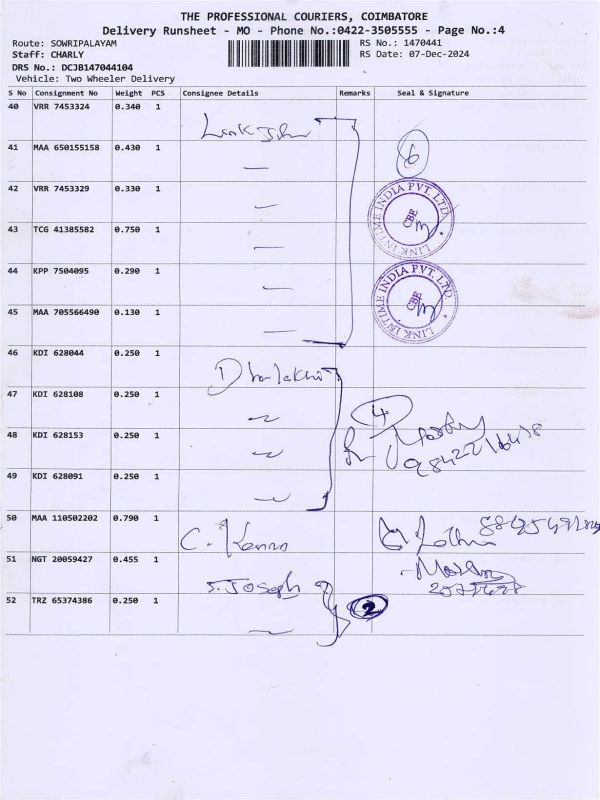 THE PROFESSIONAL COURIERS, COIMBATORE
Delivery Runsheet - MO - Phone No.:0422-3505555 - Page No.:4
Route: SOWRIPALAYAM
RS No.: 1470441
Staff: CHARLY
RS Date: 07-Dec-2024
DRS No.: DCJB147044104
Vehicle: Two Wheeler Delivery
S No Consignment No Weight PCS Consignee Details Remarks Seal & Signature
40 VRR 7453324 0.340 1
41 MAA 650155158 0.430 1
6
42 VRR 7453329 0.330 1
LINK INTIME INDIA PVT. LTD
CBE
43 TCG 41385582 0.750 1
44 KPP 7504095 0.290 1
LINK INTIME INDIA PVT. LTD
CBE
45 MAA 705566490 0.130 1
46 KDI 628044 0.250 1
47 KDI 628108 0.250 1
4
48 KDI 628153 0.250 1
49 KDI 628091 0.250 1
50 MAA 110502202 0.790 1
C. Kannn
51 NGT 20059427 0.455 1
S. Joseph
52 TRZ 65374386 0.250 1
2